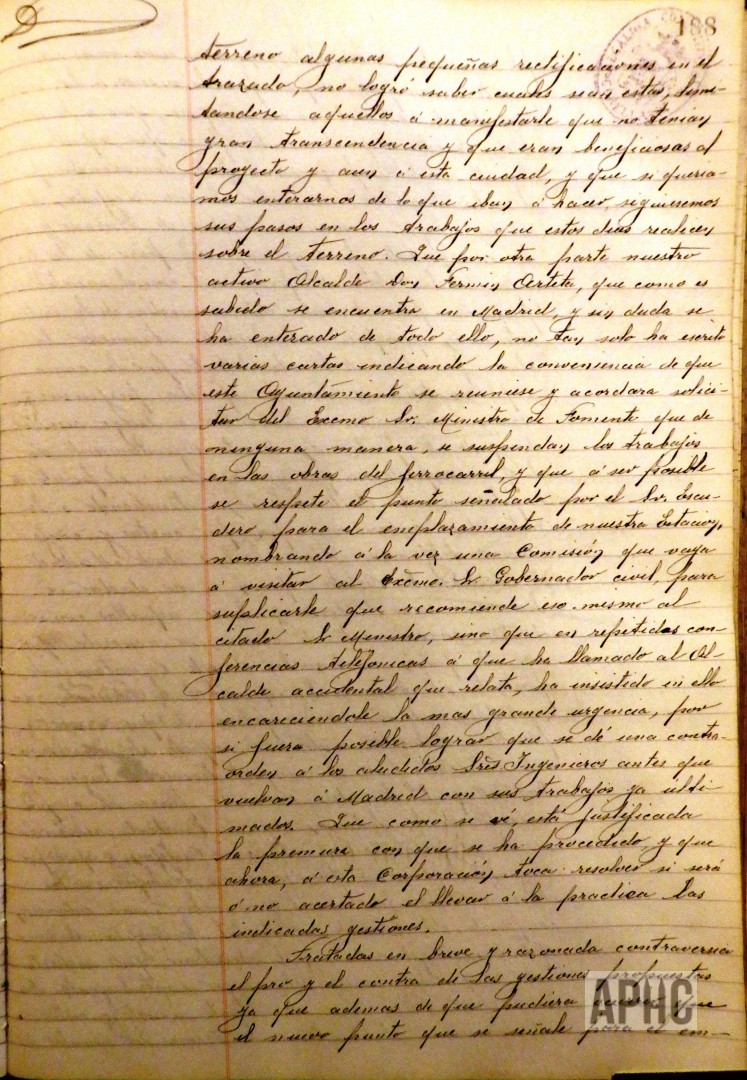 188
terreno algunas pequeñas rectificaciones en el
trazado, no logró saber cuales sean estas, limi-
tandose aquellos á manifestarle que no tenian
gran transcendencia y que eran beneficiosas al
proyecto y aun á esta ciudad, y que si queria-
mos enterarnos de lo que iban á hacer, siguiesemos
sus pasos en los trabajos que estos dias realicen
sobre el terreno. Que por otra parte nuestro
activo Alcalde Don Fermin Arteta, que como es
sabido se encuentra en Madrid, y sin duda se
ha enterado de todo ello, no tan solo ha escrito
varias cartas indicando la conveniencia de que
este Ayuntamiento se reuniese y acordara solici-
tar del Excmo Sr. Ministro de Fomento que de
ninguna manera, se suspendan los trabajos
en las obras del ferrocarril, y que á ser posible
se respete el punto señalado por el Sr. Escu-
dero para el emplazamiento de nuestra Estacion,
nombrando á la vez una Comisión que vaya
á visitar al Excmo. Sr Gobernador civil, para
suplicarle que recomiende eso mismo al
citado Sr Ministro, sino que en repetidas con-
ferencias telefonicas á que ha llamado al Al-
calde accidental que relata, ha insistido en ello
encareciendole la mas grande urgencia, por
si fuera posible lograr que se dé una contra-
orden á los aludidos Sres Ingenieros antes que
vuelvan á Madrid con sus trabajos ya ulti-
mados. Que como se vé, está justificada
la premura con que se ha procedido, y que
ahora, á esta Corporación toca resolver si será
ó no acertado el llevar á la practica las
indicadas gestiones.
Tratadas en breve y razonada contraversia
el pro y el contra de las gestiones propuestas
ya que ademas de que pudiera que
el nuevo punto que se señale para el em-
APHC